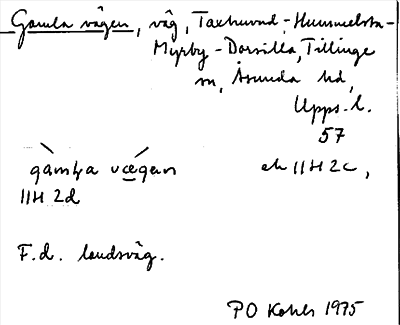 Gamla vägen, väg, Taxhuvud-Hummelsta-
Myrby-Dorsilla, Tillinge
sn, Åsunda hd,
Upps. l.
57
gàmḷa vægen ek 11H 2c,
11H 2d
F.d. landsväg.
PO Kohls 1975